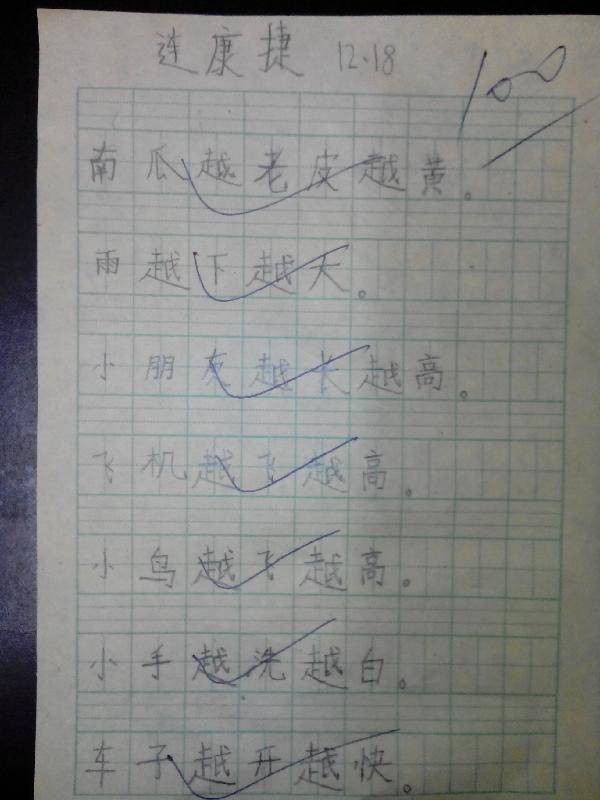 连康捷 12.18
100
南瓜越老皮越黄。
雨越下越大。
小朋友越长越高。
飞机越飞越高。
小鸟越飞越高。
小手越洗越白。
车子越开越快。